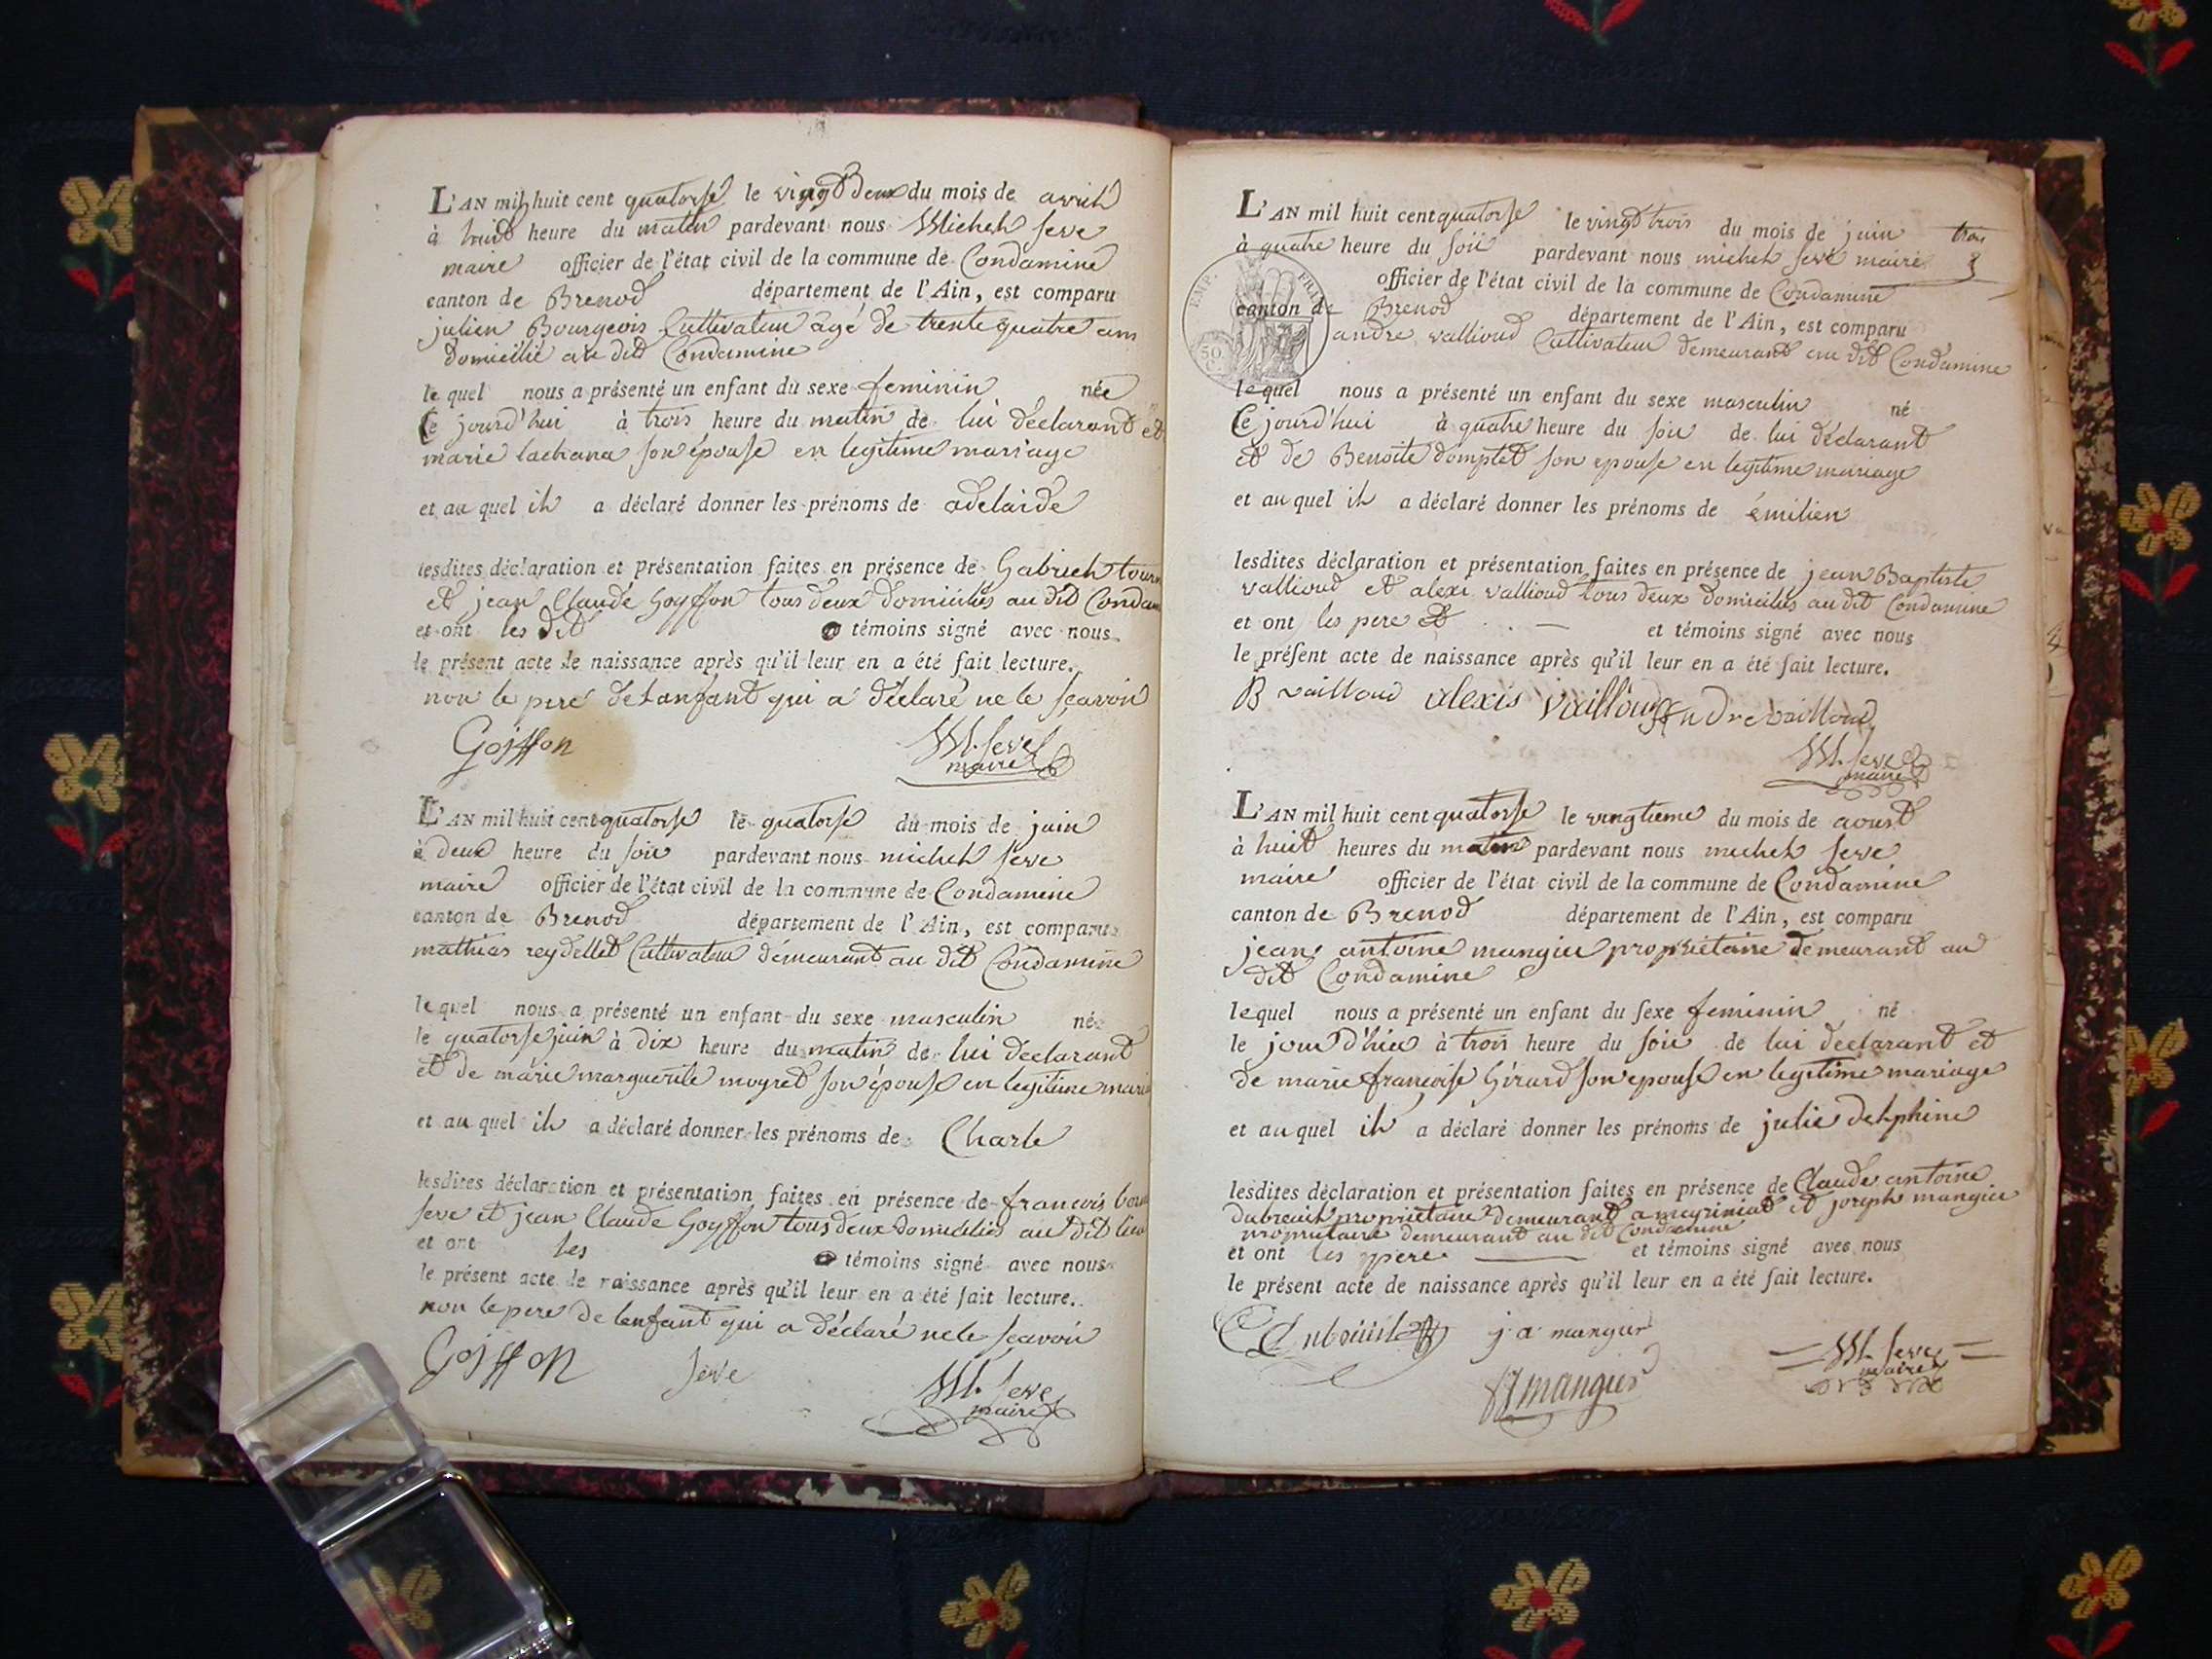 L'AN mil huit cent quatorse le vingt Deux du mois de avril
à huit heure du matin pardevant nous Michel seve
maire officier de l'état civil de la commune de Condamine
canton de Brenod département de l'Ain, est comparu
julien Bourgeois Cultivateur âgé de trente quatre ans
domicilié au dit Condamine
le quel nous a présenté un enfant du sexe feminin née
Ce jourd'hui à trois heure du matin de lui déclarant et
marie lachana son épouse en legitime mariage
et au quel il a déclaré donner les prénoms de adelaide
lesdites déclaration et présentation faites en présence de Gabriel
et jean Claude Goyffon tous deux domiciliés au dit
et ont les dit témoins signé avec nous
le présent acte de naissance après qu'il leur en a été fait lecture.
non le pere de lanfant qui a déclaré ne le sçavoir
Goiffon M. seve
maire
L'AN mil huit cent quatorse le quatorse du mois de juin
à deux heure du soir pardevant nous michel seve
maire officier de l'état civil de la commune de Condamine
canton de Brenod département de l'Ain, est comparu
mathias reydellet Cultivateur demeurant au dit Condamine
le quel nous a présenté un enfant du sexe masculin né
le quatorse juin à dix heure du matin de lui declarant
et de marie marguerite moyret son épouse en legitime
et au quel il a déclaré donner les prénoms de Charle
lesdites déclaration et présentation faites en présence de francois
seve et jean Claude Goyffon tous deux domiciliés au dit lieu
et ont les témoins signé avec nous
le présent acte de naissance après qu'il leur en a été fait lecture.
non le pere de lenfant qui a déclaré ne le scavoir
Goiffon seve M. seve
maire
L'AN mil huit cent quatorse le vingt trois du mois de juin
trois
à quatre heure du soir pardevant nous michel seve maire
3
officier de l'état civil de la commune de Condamine
canton de Brenod département de l'Ain, est comparu
andre vallioud Cultivateur demeurant au dit Condamine
EMP. FR
50
C
le quel nous a présenté un enfant du sexe masculin né
Ce jourd'hui à quatre heure du soir de lui déclarant
et de Benoite domptet son epouse en legitime mariage
et au quel il a déclaré donner les prénoms de émilien
lesdites déclaration et présentation faites en présence de jean Baptiste
vallioud et alexi vallioud tous deux domiciliés au dit Condamine
et ont les pere et et témoins signé avec nous
le présent acte de naissance après qu'il leur en a été fait lecture.
B vailloud alexis vailloud Andre vailloud
M. seve
maire
L'AN mil huit cent quatorse le vingtieme du mois de aoust
à huit heures du matin pardevant nous michel seve
maire officier de l'état civil de la commune de Condamine
canton de Brenod département de l'Ain, est comparu
jean antoine mangier proprietaire demeurant au
dit Condamine
le quel nous a présenté un enfant du sexe feminin né
le jour d'hier à trois heure du soir de lui declarant et
de marie francoise Gérard son epouse en legitime mariage
et au quel il a déclaré donner les prénoms de julie delphine
lesdites déclaration et présentation faites en présence de Claude antoine
Dubreuil proprietaire demeurant a meyriniat et joseph mangier
proprietaire demeurant au dit Condamine
et ont les pere et témoins signé avec nous
le présent acte de naissance après qu'il leur en a été fait lecture.
j a mangier
M. seve
maire
mangier